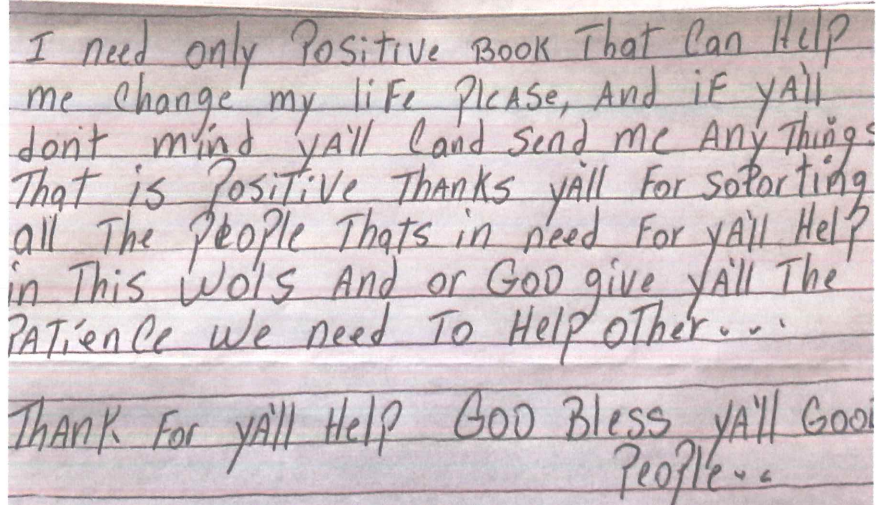 I need only Positive Book That Can Help
me Change my life Please, And if yA'll
don't mind yA'll Cand Send me Any Things
That is Positive Thanks yAll For soPorting
all The PeoPle Thats in need For yA'll Help
in This Wol's And or GOD give yA'll The
PATienCe We need To Help oTher...
THANK For yA'll Help GOD Bless yA'll Good
PeoPle..